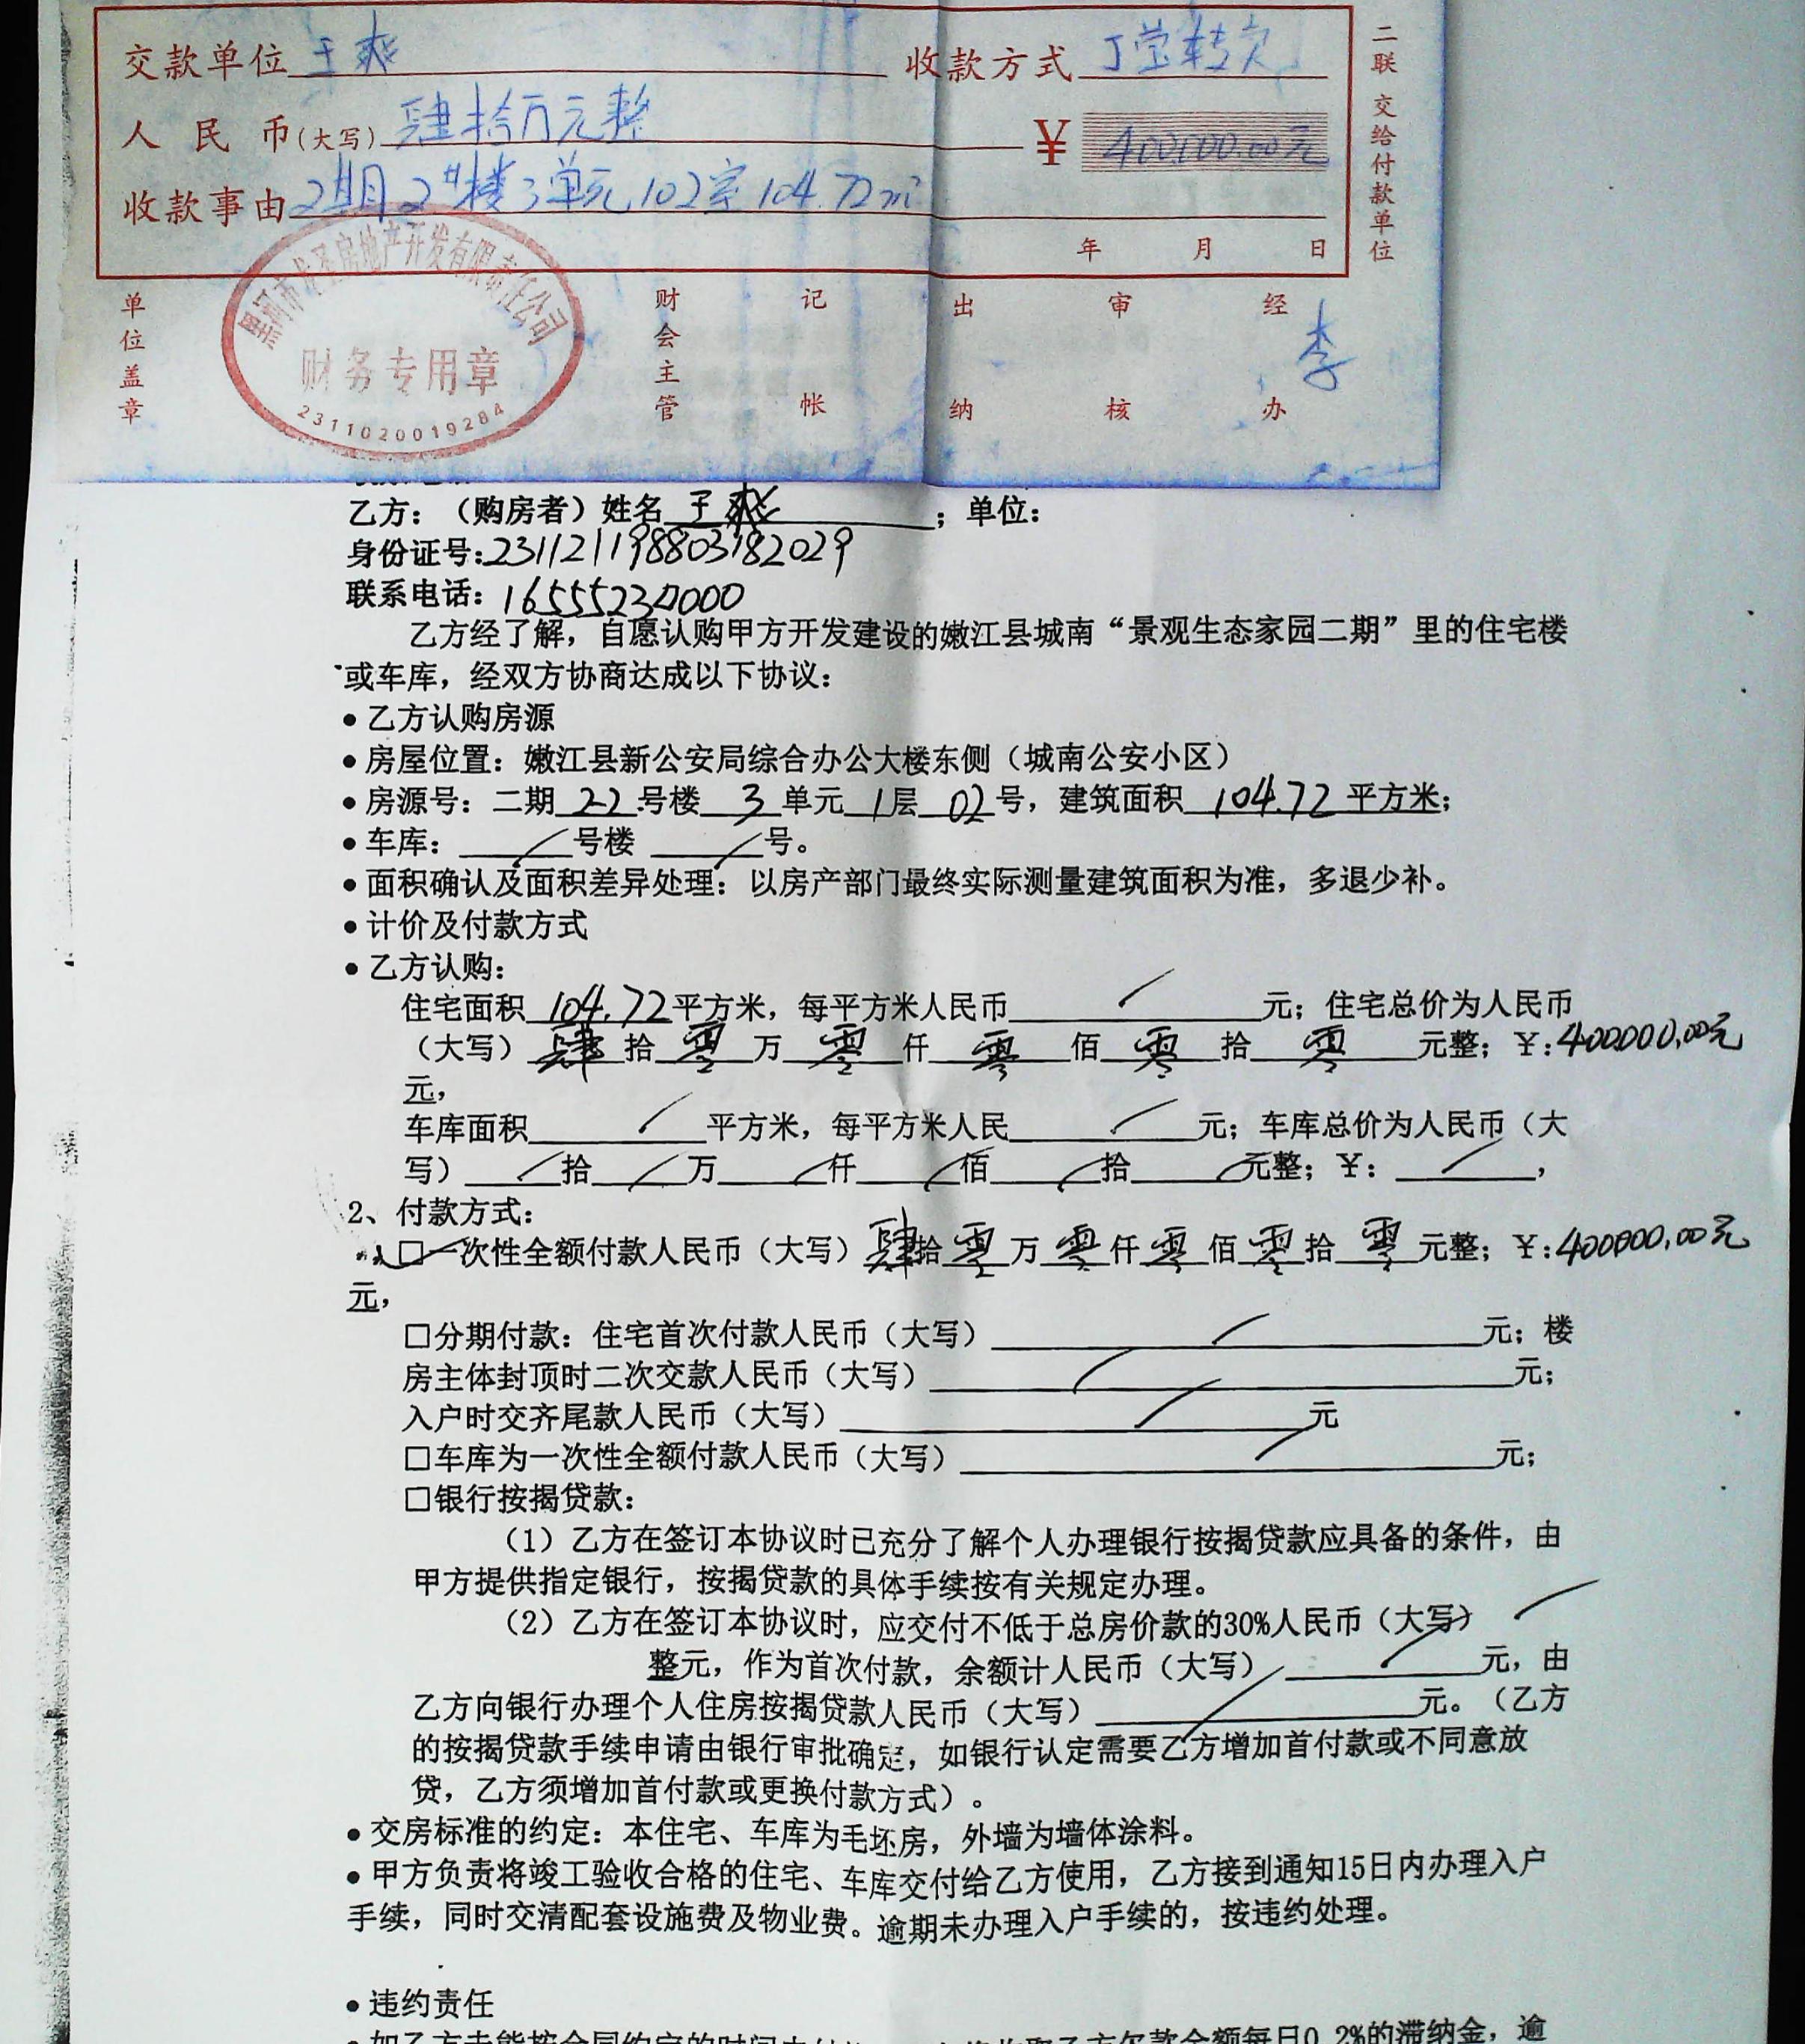 交款单位 王爽 收款方式 丁莹转欠
人民币(大写) 肆拾万元整 ￥ 400,000.00元
收款事由 2期2#楼3单元102室104.72㎡
年 月 日
二联 交给付款单位
单位盖章 财会主管 记帐 出纳 审核 经办 李
黑河市龙圣房地产开发有限责任公司
财务专用章
2311020019284
乙方：（购房者）姓名 王爽 ；单位：
身份证号:231121198803182029
联系电话：16555230000
乙方经了解，自愿认购甲方开发建设的嫩江县城南“景观生态家园二期”里的住宅楼
或车库，经双方协商达成以下协议：
● 乙方认购房源
● 房屋位置：嫩江县新公安局综合办公大楼东侧（城南公安小区）
● 房源号：二期 22 号楼 3 单元 1 层 02 号，建筑面积 104.72 平方米；
● 车库： / 号楼 / 号。
● 面积确认及面积差异处理：以房产部门最终实际测量建筑面积为准，多退少补。
● 计价及付款方式
● 乙方认购：
住宅面积 104.72 平方米，每平方米人民币 / 元；住宅总价为人民币
（大写） 肆 拾 零 万 零 仟 零 佰 零 拾 零 元整；￥:400000.00元
元，
车库面积 / 平方米，每平方米人民 / 元；车库总价为人民币（大
写） / 拾 / 万 / 仟 / 佰 / 拾 / 元整；￥： / ，
2、付款方式：
□一次性全额付款人民币（大写） 肆 拾 零 万 零 仟 零 佰 零 拾 零 元整；￥:400000.00元
元，
□分期付款：住宅首次付款人民币（大写） / 元；楼
房主体封顶时二次交款人民币（大写） / 元；
入户时交齐尾款人民币（大写） / 元
□车库为一次性全额付款人民币（大写） / 元；
□银行按揭贷款：
（1）乙方在签订本协议时已充分了解个人办理银行按揭贷款应具备的条件，由
甲方提供指定银行，按揭贷款的具体手续按有关规定办理。
（2）乙方在签订本协议时，应交付不低于总房价款的30%人民币（大写） /
整元，作为首次付款，余额计人民币（大写） / 元，由
乙方向银行办理个人住房按揭贷款人民币（大写） / 元。（乙方
的按揭贷款手续申请由银行审批确定，如银行认定需要乙方增加首付款或不同意放
贷，乙方须增加首付款或更换付款方式）。
● 交房标准的约定：本住宅、车库为毛坯房，外墙为墙体涂料。
● 甲方负责将竣工验收合格的住宅、车库交付给乙方使用，乙方接到通知15日内办理入户
手续，同时交清配套设施费及物业费。逾期未办理入户手续的，按违约处理。
● 违约责任